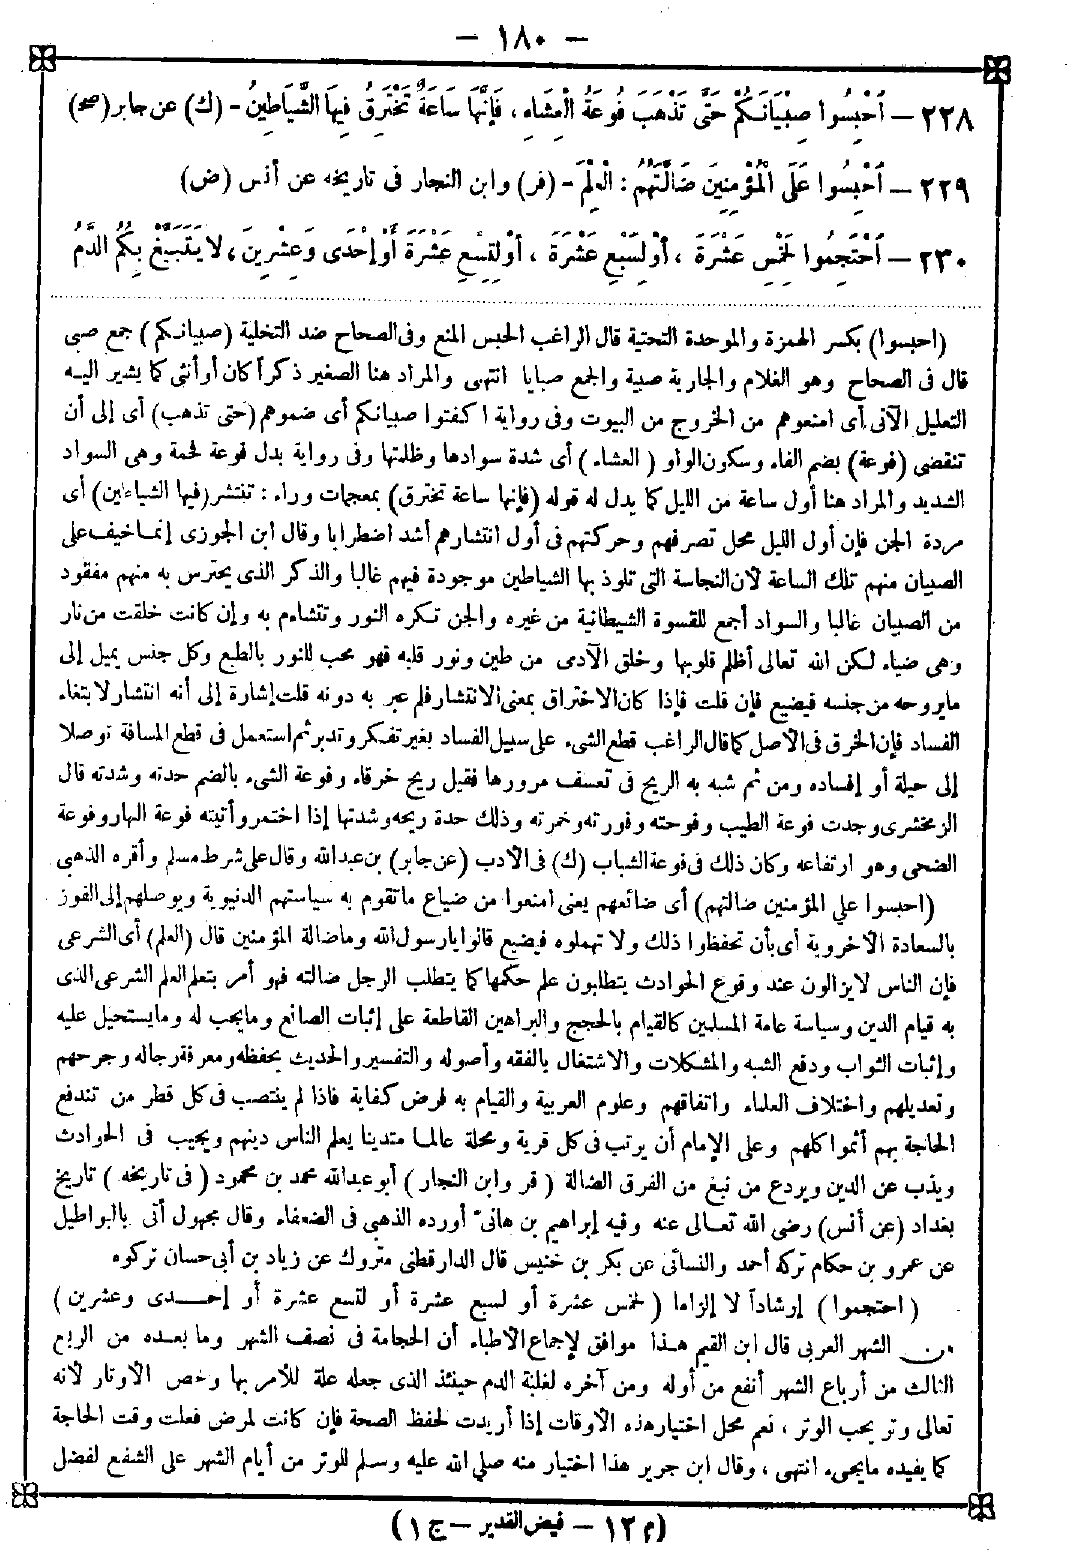 – ١٨٠ –
٢٢٨ – اَحْبِسُوا صِبْيَانَكُمْ حَتَّى تَذْهَبَ فُوعَةُ الْعِشَاءِ ، فَإِنَّهَا سَاعَةٌ تَخْتَرِقُ فِيهَا الشَّيَاطِينُ – (ك) عن جابر (صح)
٢٢٩ – اَحْبِسُوا عَلَى الْمُؤْمِنِينَ ضَالَّتَهُمْ : الْعِلْمَ – (فر) وابن النجار فى تاريخه عن أنس (ض)
٢٣٠ – اَحْتَجِمُوا لِخَمْسِ عَشْرَةَ ، أَوْ لِسَبْعِ عَشْرَةَ ، أَوْ لِتِسْعِ عَشْرَةَ أَوْ إِحْدَى وَعِشْرِينَ ، لَا يَتَبَيَّغْ بِكُمُ الدَّمُ
(احبسوا) بكسر الهمزة والموحدة التحتية قال الراغب الحبس المنع وفى الصحاح ضد التخلية (صبيانكم) جمع صبى
قال فى الصحاح وهو الغلام والجارية صبية والجمع صبايا انتهى والمراد هنا الصغير ذكراً كان أو أنثى كما يشير اليه
التعليل الآتى أى امنعوهم من الخروج من البيوت وفى رواية اكفتوا صبيانكم أى ضموهم (حتى تذهب) أى إلى أن
تنقضى (فوعة) بضم الفاء وسكون الواو (العشاء) أى شدة سوادها وظلمتها وفى رواية بدل فوعة فحمة وهى السواد
الشديد والمراد هنا أول ساعة من الليل كما يدل له قوله (فإنها ساعة تخترق) بمعجمات وراء : تنتشر (فيها الشياطين) أى
مردة الجن فإن أول الليل محل تصرفهم وحركتهم فى أول انتشارهم أشد اضطرابا وقال ابن الجوزى إنما خيف على
الصبيان منهم تلك الساعة لأن النجاسة التى تلوذ بها الشياطين موجودة فيهم غالبا والذكر الذى يحترس به منهم مفقود
من الصبيان غالبا والسواد أجمع للقسوة الشيطانية من غيره والجن تكره النور وتتشاءم به وإن كانت خلقت من نار
وهى ضياء لكن الله تعالى أظلم قلوبها وخلق الآدمى من طين ونور قلبه فهو محب للنور بالطبع وكل جنس يميل إلى
مايروحه من جنسه فيضيع فإن قلت فإذا كان الاختراق بمعنى الانتشار فلم عبر به دونه قلت إشارة إلى أنه انتشار لابتغاء
الفساد فإن الخرق فى الأصل كما قال الراغب قطع الشىء على سبيل الفساد بغير تفكر وتدبر ثم استعمل فى قطع المسافة توصلا
إلى حيلة أو إفساده ومن ثم شبه به الريح فى تعسف مرورها فقيل ريح خرقاء وفوعة الشىء بالضم حدته وشدته قال
الزمخشرى وجدت فوعة الطيب وفوحته وفورته وخمرته وذلك حدة ريحه وشدتها إذا اختمر وأتيته فوعة النهار وفوعة
الضحى وهو ارتفاعه وكان ذلك فى فوعة الشباب (ك) فى الأدب (عن جابر) بن عبد الله وقال على شرط مسلم وأقره الذهبى
(احبسوا على المؤمنين ضالتهم) أى ضائعهم يعنى امنعوا من ضياع ماتقوم به سياستهم الدنيوية ويوصلهم إلى الفوز
بالسعادة الأخروية أى بأن تحفظوا ذلك ولا تهملوه فيضيع قالوا يارسول الله وماضالة المؤمنين قال (العلم) أى الشرعى
فإن الناس لايزالون عند وقوع الحوادث يتطلبون علم حكمها كما يتطلب الرجل ضالته فهو أمر بتعلم العلم الشرعى الذى
به قيام الدين وسياسة عامة المسلمين كالقيام بالحجج والبراهين القاطعة على إثبات الصانع ومايجب له ومايستحيل عليه
وإثبات النواب ودفع الشبه والمشكلات والاشتغال بالفقه وأصوله والتفسير والحديث بحفظه ومعرفة رجاله وجرحهم
وتعديلهم واختلاف العلماء واتفاقهم وعلوم العربية والقيام به فرض كفاية فاذا لم ينتصب فى كل قطر من تندفع
الحاجة بهم أثموا كلهم وعلى الإمام أن يرتب فى كل قرية ومحلة عالما متدينا يعلم الناس دينهم ويجيب فى الحوادث
ويذب عن الدين ويردع من نبغ من الفرق الضالة (فر وابن النجار) أبو عبد الله محمد بن محمود (فى تاريخه) تاريخ
بغداد (عن أنس) رضى الله تعالى عنه وفيه إبراهيم بن هانىء أورده الذهبى فى الضعفاء وقال مجهول أتى بالبواطيل
عن عمرو بن حكام تركه أحمد والنسائى عن بكر بن خنيس قال الدارقطنى متروك عن زياد بن أبى حسان تركوه
(احتجموا) إرشاداً لا إلزاما (لخمس عشرة أو لسبع عشرة أو لتسع عشرة أو إحدى وعشرين)
من الشهر العربى قال ابن القيم هذا موافق لإجماع الأطباء أن الحجامة فى نصف الشهر وما بعده من الربع
الثالث من أرباع الشهر أنفع من أوله ومن آخره لغلبة الدم حينئذ الذى جعله علة للأمر بها وخص الأوتار لأنه
تعالى وتر يحب الوتر ، نعم محل اختيار هذه الأوقات إذا أريدت لحفظ الصحة فإن كانت لمرض فعلت وقت الحاجة
كما يفيده مايجىء انتهى ، وقال ابن جرير هذا اختيار منه صلى الله عليه وسلم للوتر من أيام الشهر على الشفع لفضل
(م ١٢ – فيض القدير – ج ١)